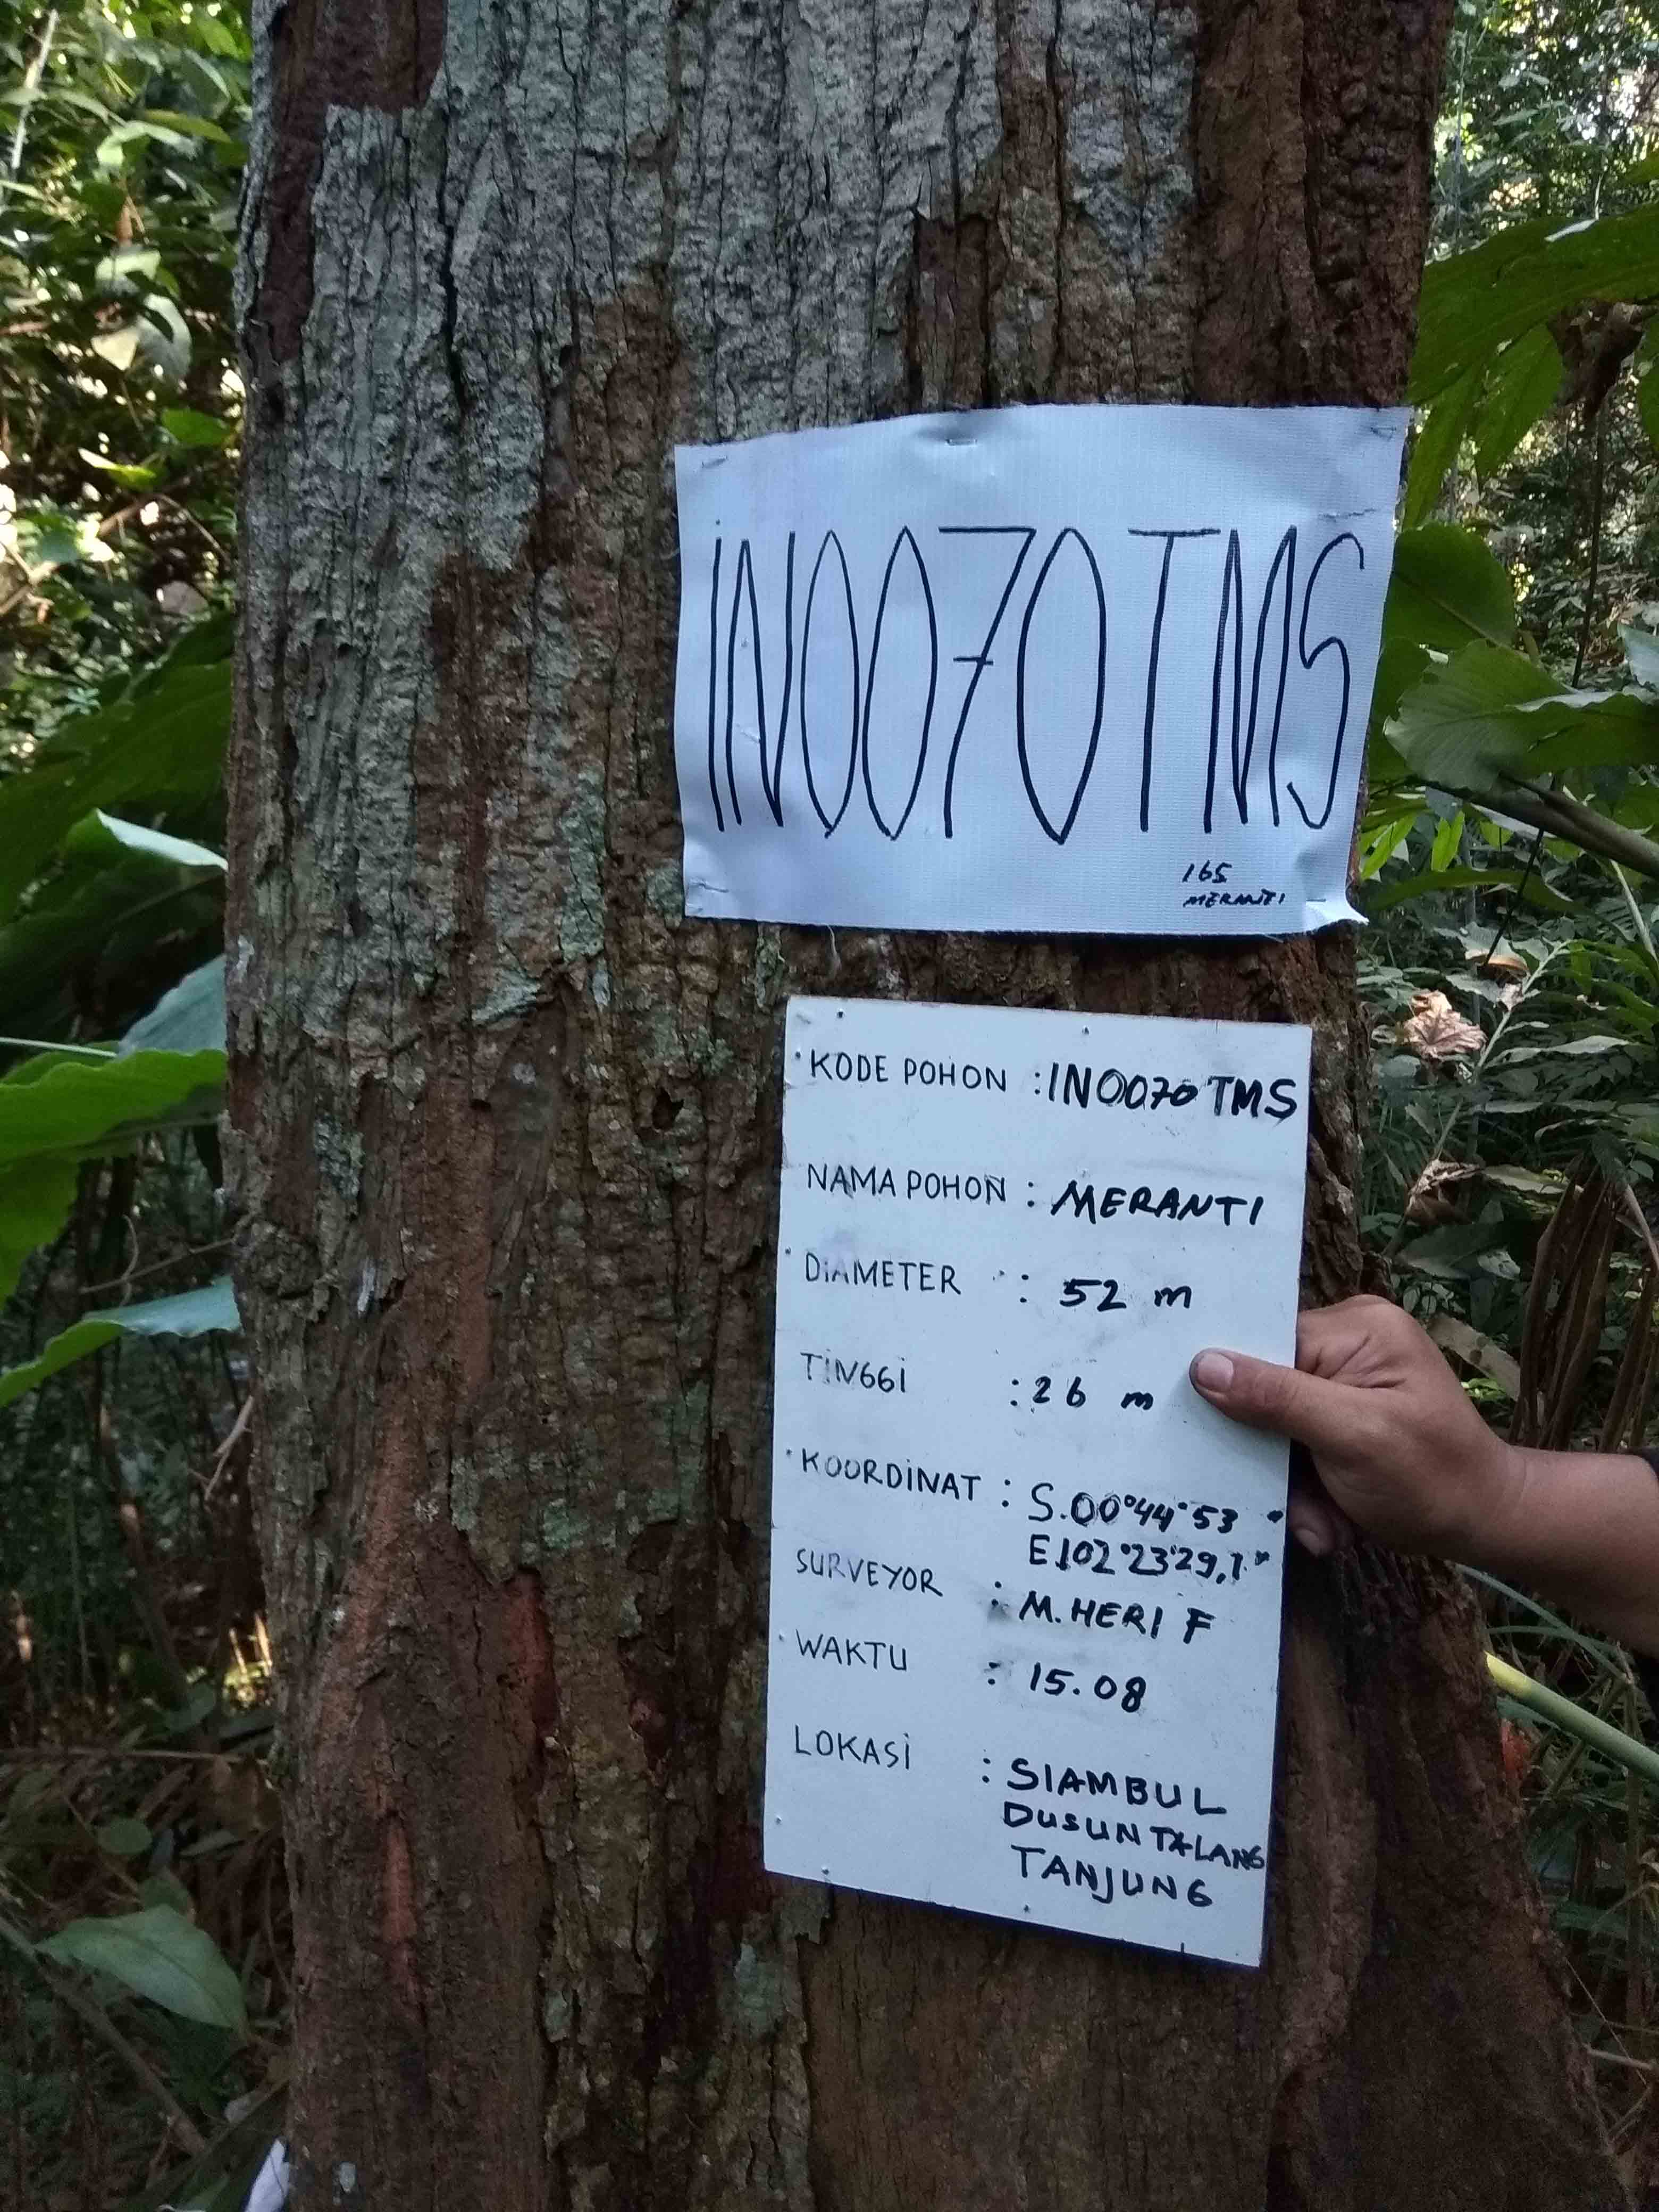 iN0070TMS
165
MERANTI
KODE POHON : IN0070 TMS
NAMA POHON : MERANTI
DiAMETER : 52 m
TiNGGi : 26 m
KOORDiNAT : S.00°44'53"
E102°23'29,1"
SURVEYOR : M.HERI F
WAKTU : 15.08
LOKASi : SIAMBUL
DUSUN TALANG
TANJUNG